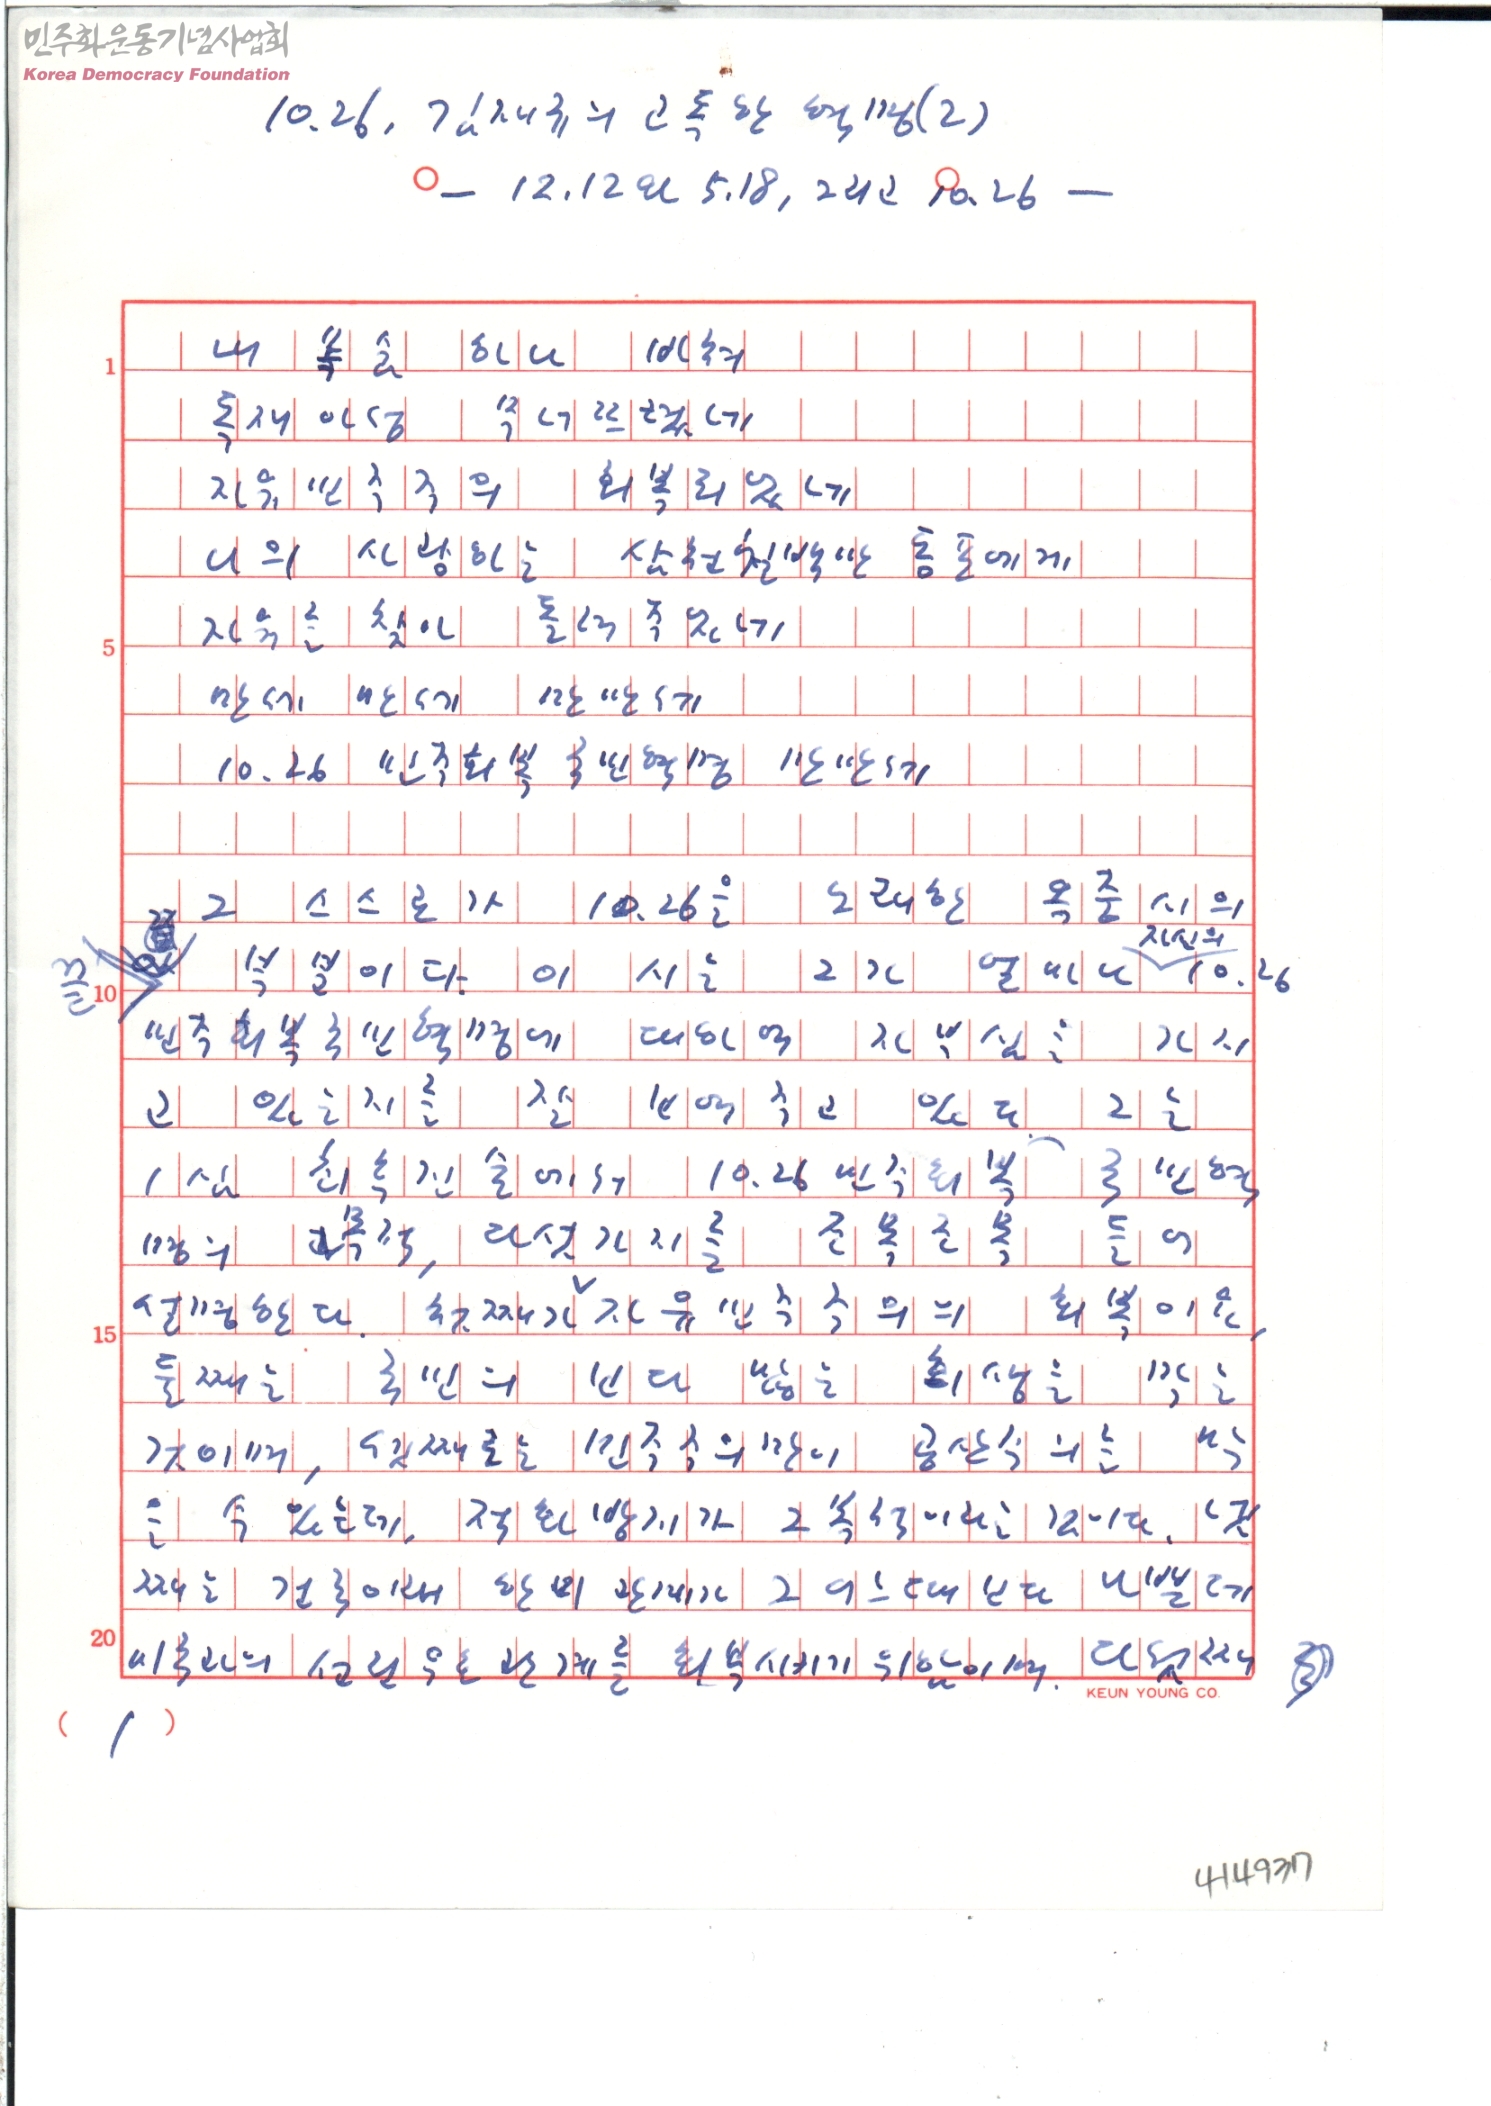 민주화운동기념사업회
Korea Democracy Foundation
10.26, 김재규의 고독한 혁명(2)
— 12.12와 5.18, 그리고 10.26 —
1
내 목숨 하나 바쳐
독재아성 무너뜨렸네
자유민주주의 회복되었네
나의 사랑하는 삼천칠백만 동포에게
5
자유를 찾아 돌려주었네
만세 만세 만만세
10.26 민주회복 국민혁명 만만세
그 스스로가 10.26을 노래한 옥중시의
자신의
10
끝 부분이다. 이 시는 그가 얼마나 10.26
민주회복국민혁명에 대하여 자부심을 가지
고 있는지를 잘 보여주고 있다 그는
1심 최후진술에서 10.26 민주회복 국민혁
명의 목적, 다섯가지를 조목조목 들어
15
설명한다. 첫째가 자유민주주의의 회복이요,
둘째는 국민의 보다 많은 희생을 막는
것이며, 셋째로는 민주주의만이 공산주의는 막
을 수 있는데, 적화방지가 그 목적이라는 것이다. 넷
째는 건국이래 한미관계가 그 어느때보다 나쁜데
20
미국과의 선린우호관계를 회복시키기 위함이며. 다섯째
KEUN YOUNG CO.
( 1 )
414937